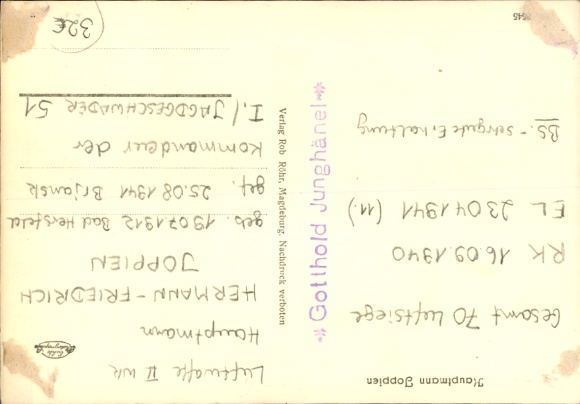 Hauptmann Joppien
Gesamt 70 Luftsiege
RK 16.09.1940
EL 23.04.1941 (11.)
BS.- sehr gute Erhaltung
* Gotthold Junghänel *
Verlag Rob Röhr, Magdeburg, Nachdruck verboten
Luftwaffe II WK
Hauptmann
HERMANN-FRIEDRICH
JOPPIEN
geb. 19.07.1912 Bad Hersfeld
gef. 25.08.1941 Brjansk
Kommandeur der
I./JAGDGESCHWADER 51
32€